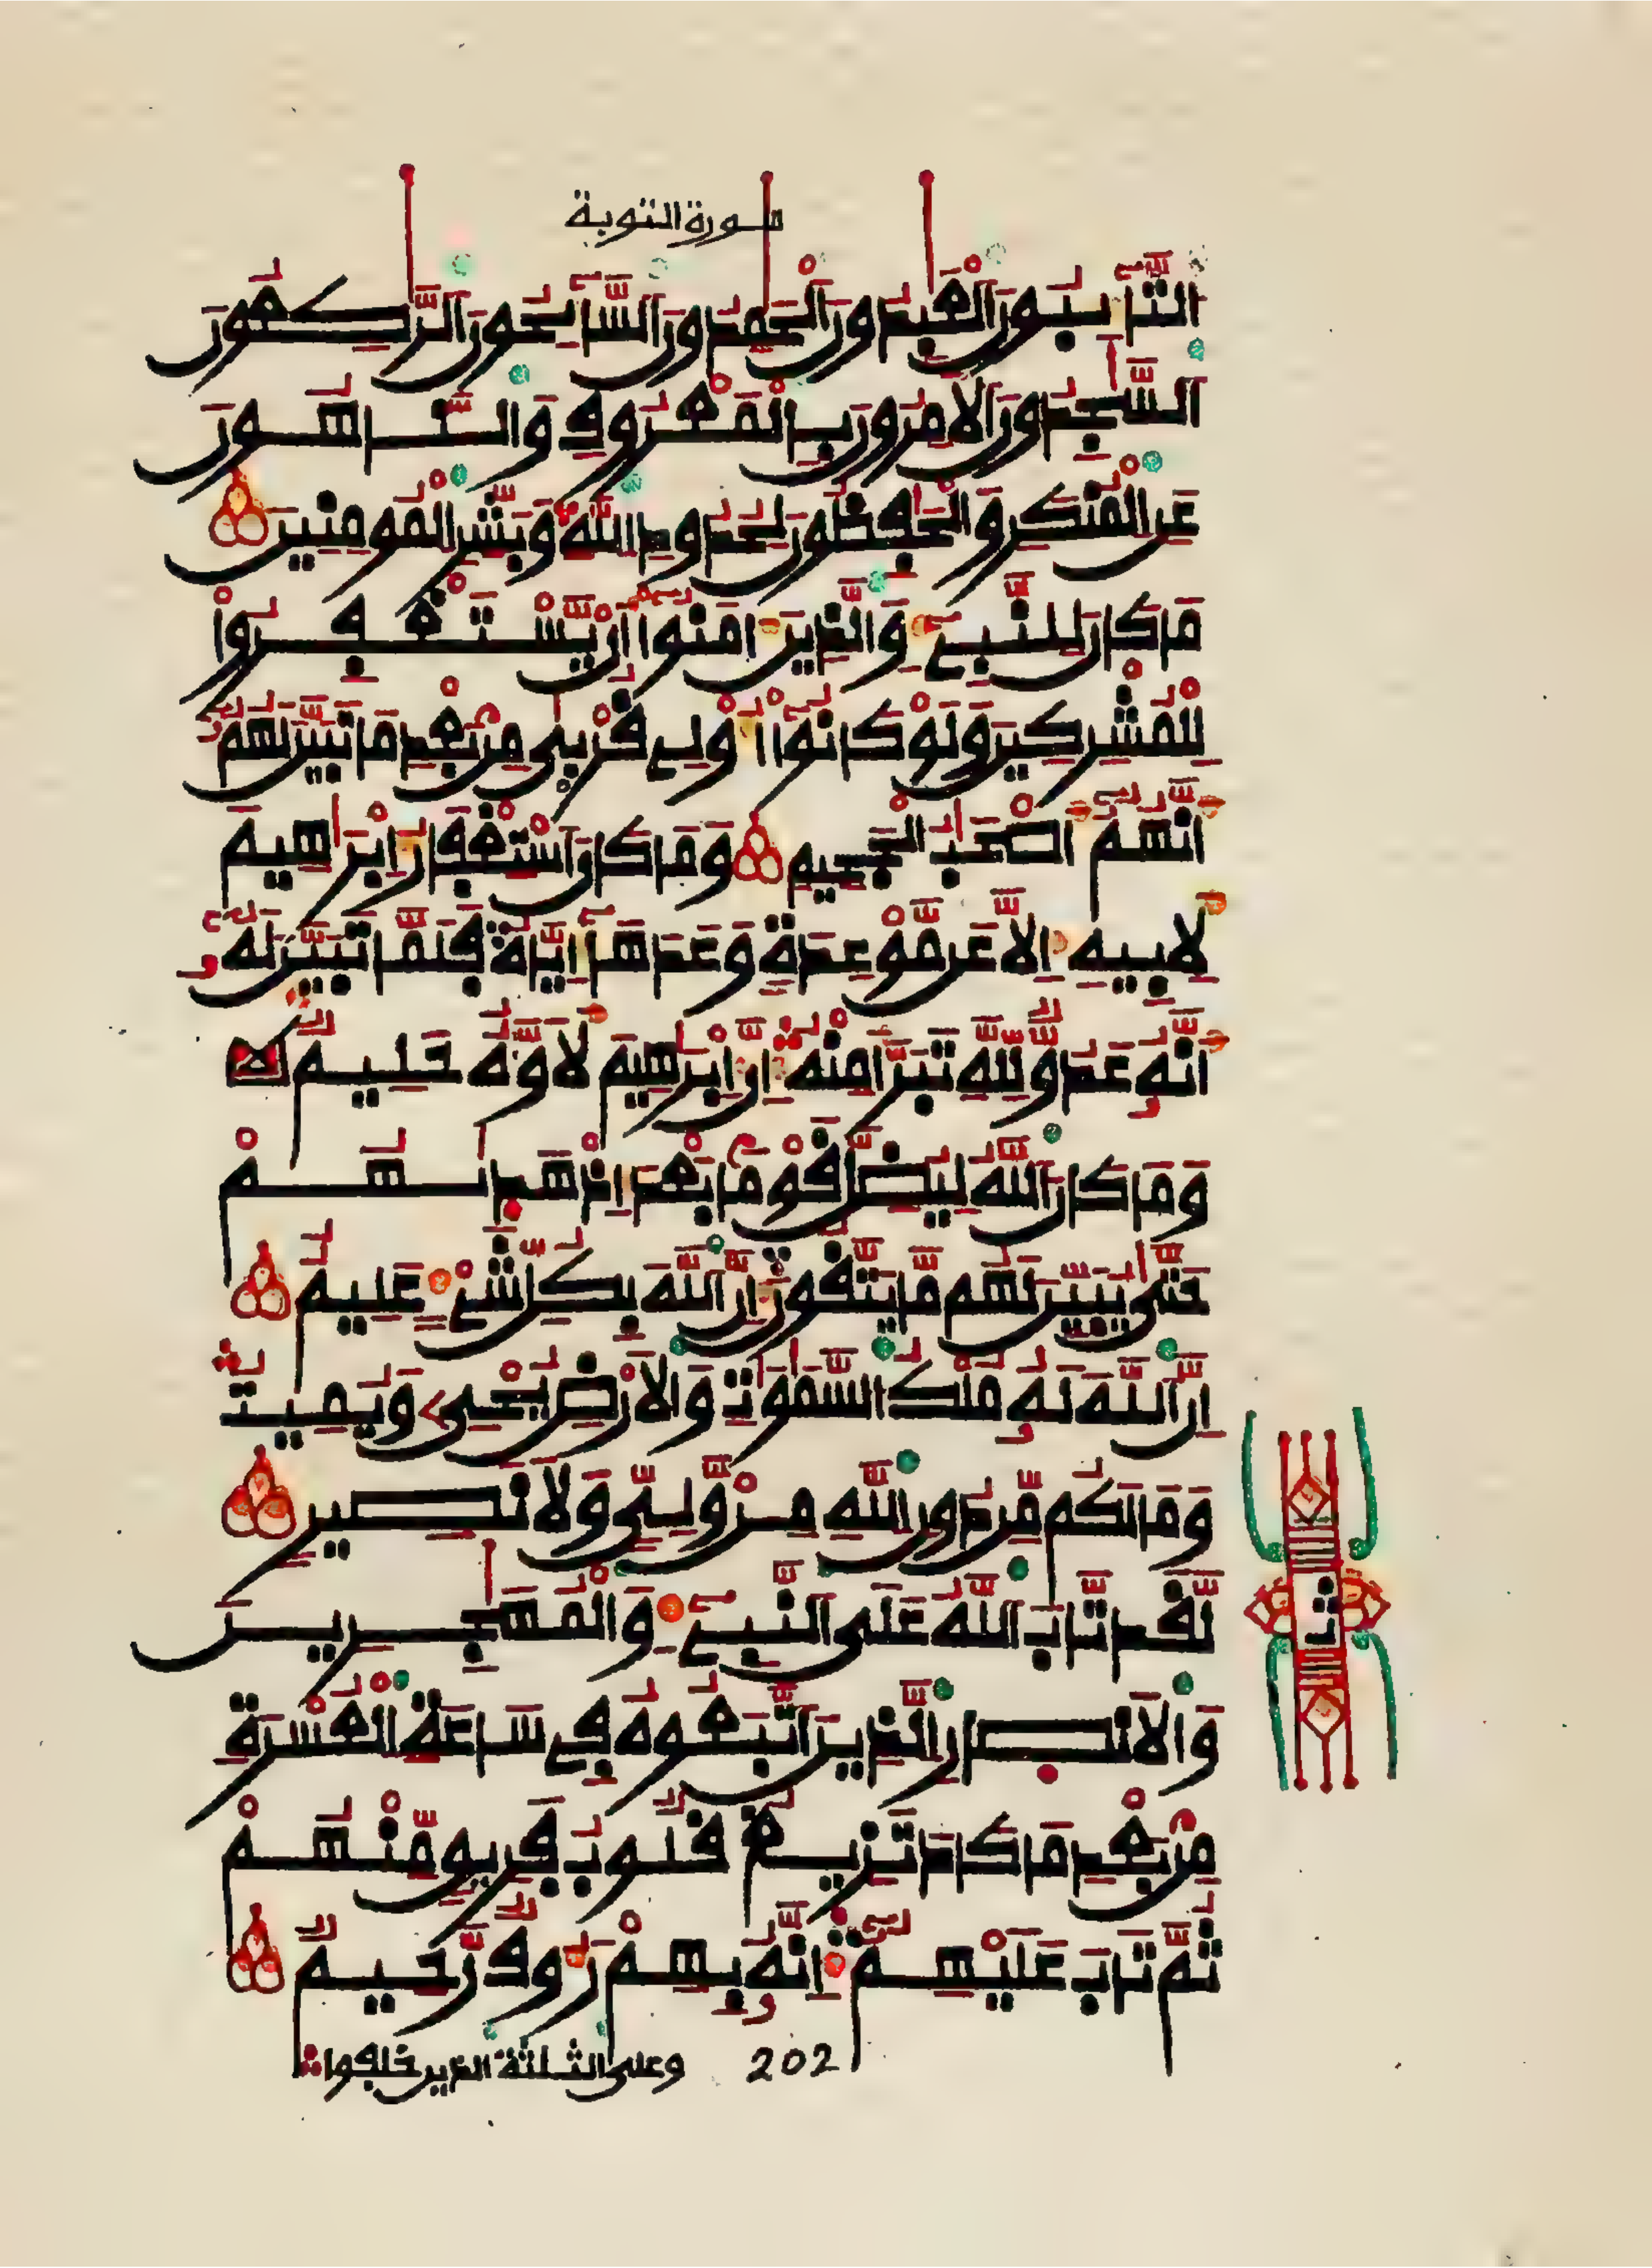 سورة التوبة
اَ۬لتَّٰٓئِبُونَ اَ۬لْعَٰبِدُونَ اَ۬لْحَٰمِدُونَ اَ۬لسَّٰٓئِحُونَ اَ۬لرَّٰكِعُونَ
اَ۬لسَّٰجِدُونَ اَ۬لَامِرُونَ بِالْمَعْرُوفِ وَالنَّاهُونَ
عَنِ اِ۬لْمُنكَرِ وَالْحَٰفِظُونَ لِحُدُودِ اِ۬للَّهِ وَبَشِّرِ اِ۬لْمُومِنِينَ
مَا كَانَ لِلنَّبِےٓءِ وَالذِينَ ءَامَنُوٓاْ أَنْ يَّسْتَغْفِرُواْ
لِلْمُشْرِكِينَ وَلَوْ كَانُوٓاْ أُوْلِے قُرْبٜيٰ مِنۢ بَعْدِ مَا تَبَيَّنَ لَهُمُۥٓ
أَنَّهُمُۥٓ أَصْحَٰبُ اُ۬لْجَحِيمِ وَمَا كَانَ اَ۪سْتِغْفَارُ إِبْرَٰهِيمَ
لِأَبِيهِ إِلَّا عَن مَّوْعِدَةٖ وَعَدَهَآ إِيَّاهُ فَلَمَّا تَبَيَّنَ لَهُۥٓ
أَنَّهُۥ عَدُوّٞ لِّلهِ تَبَرَّأَ مِنْهُ إِنَّ إِبْرَٰهِيمَ لَأَوَّٰهٌ حَلِيمٞ
وَمَا كَانَ اَ۬للَّهُ لِيُضِلَّ قَوْماَۢ بَعْدَ إِذْ هَد۪يٰهُمْ
حَتَّيٰ يُبَيِّنَ لَهُم مَّا يَتَّقُونَ إِنَّ اَ۬للَّهَ بِكُلِّ شَےْءٍ عَلِيمٌ
إِنَّ اَ۬للَّهَ لَهُۥ مُلْكُ اُ۬لسَّمَٰوَٰتِ وَالَارْضِ يُحْيِۦ وَيُمِيتُ
وَمَا لَكُم مِّن دُونِ اِ۬للَّهِ مِنْ وَّلِيّٖ وَلَا نَصِيرٖ
لَّقَد تَّابَ اَ۬للَّهُ عَلَي اَ۬لنَّبِےٓءِ وَالْمُهَٰجِرِينَ
وَالَانص۪ارِ اِ۬لذِينَ اَ۪تَّبَعُوهُ فِے سَاعَةِ اِ۬لْعُسْرَةِ
مِنۢ بَعْدِ مَا كَادَ تَزِيغُ قُلُوبُ فَرِيقٖ مِّنْهُمْ
ثُمَّ تَابَ عَلَيْهِمُۥٓ إِنَّهُۥ بِهِمْ رَءُوفٞ رَّحِيمٞ
202 وعلى الثلثة الذين خلفوا
ث